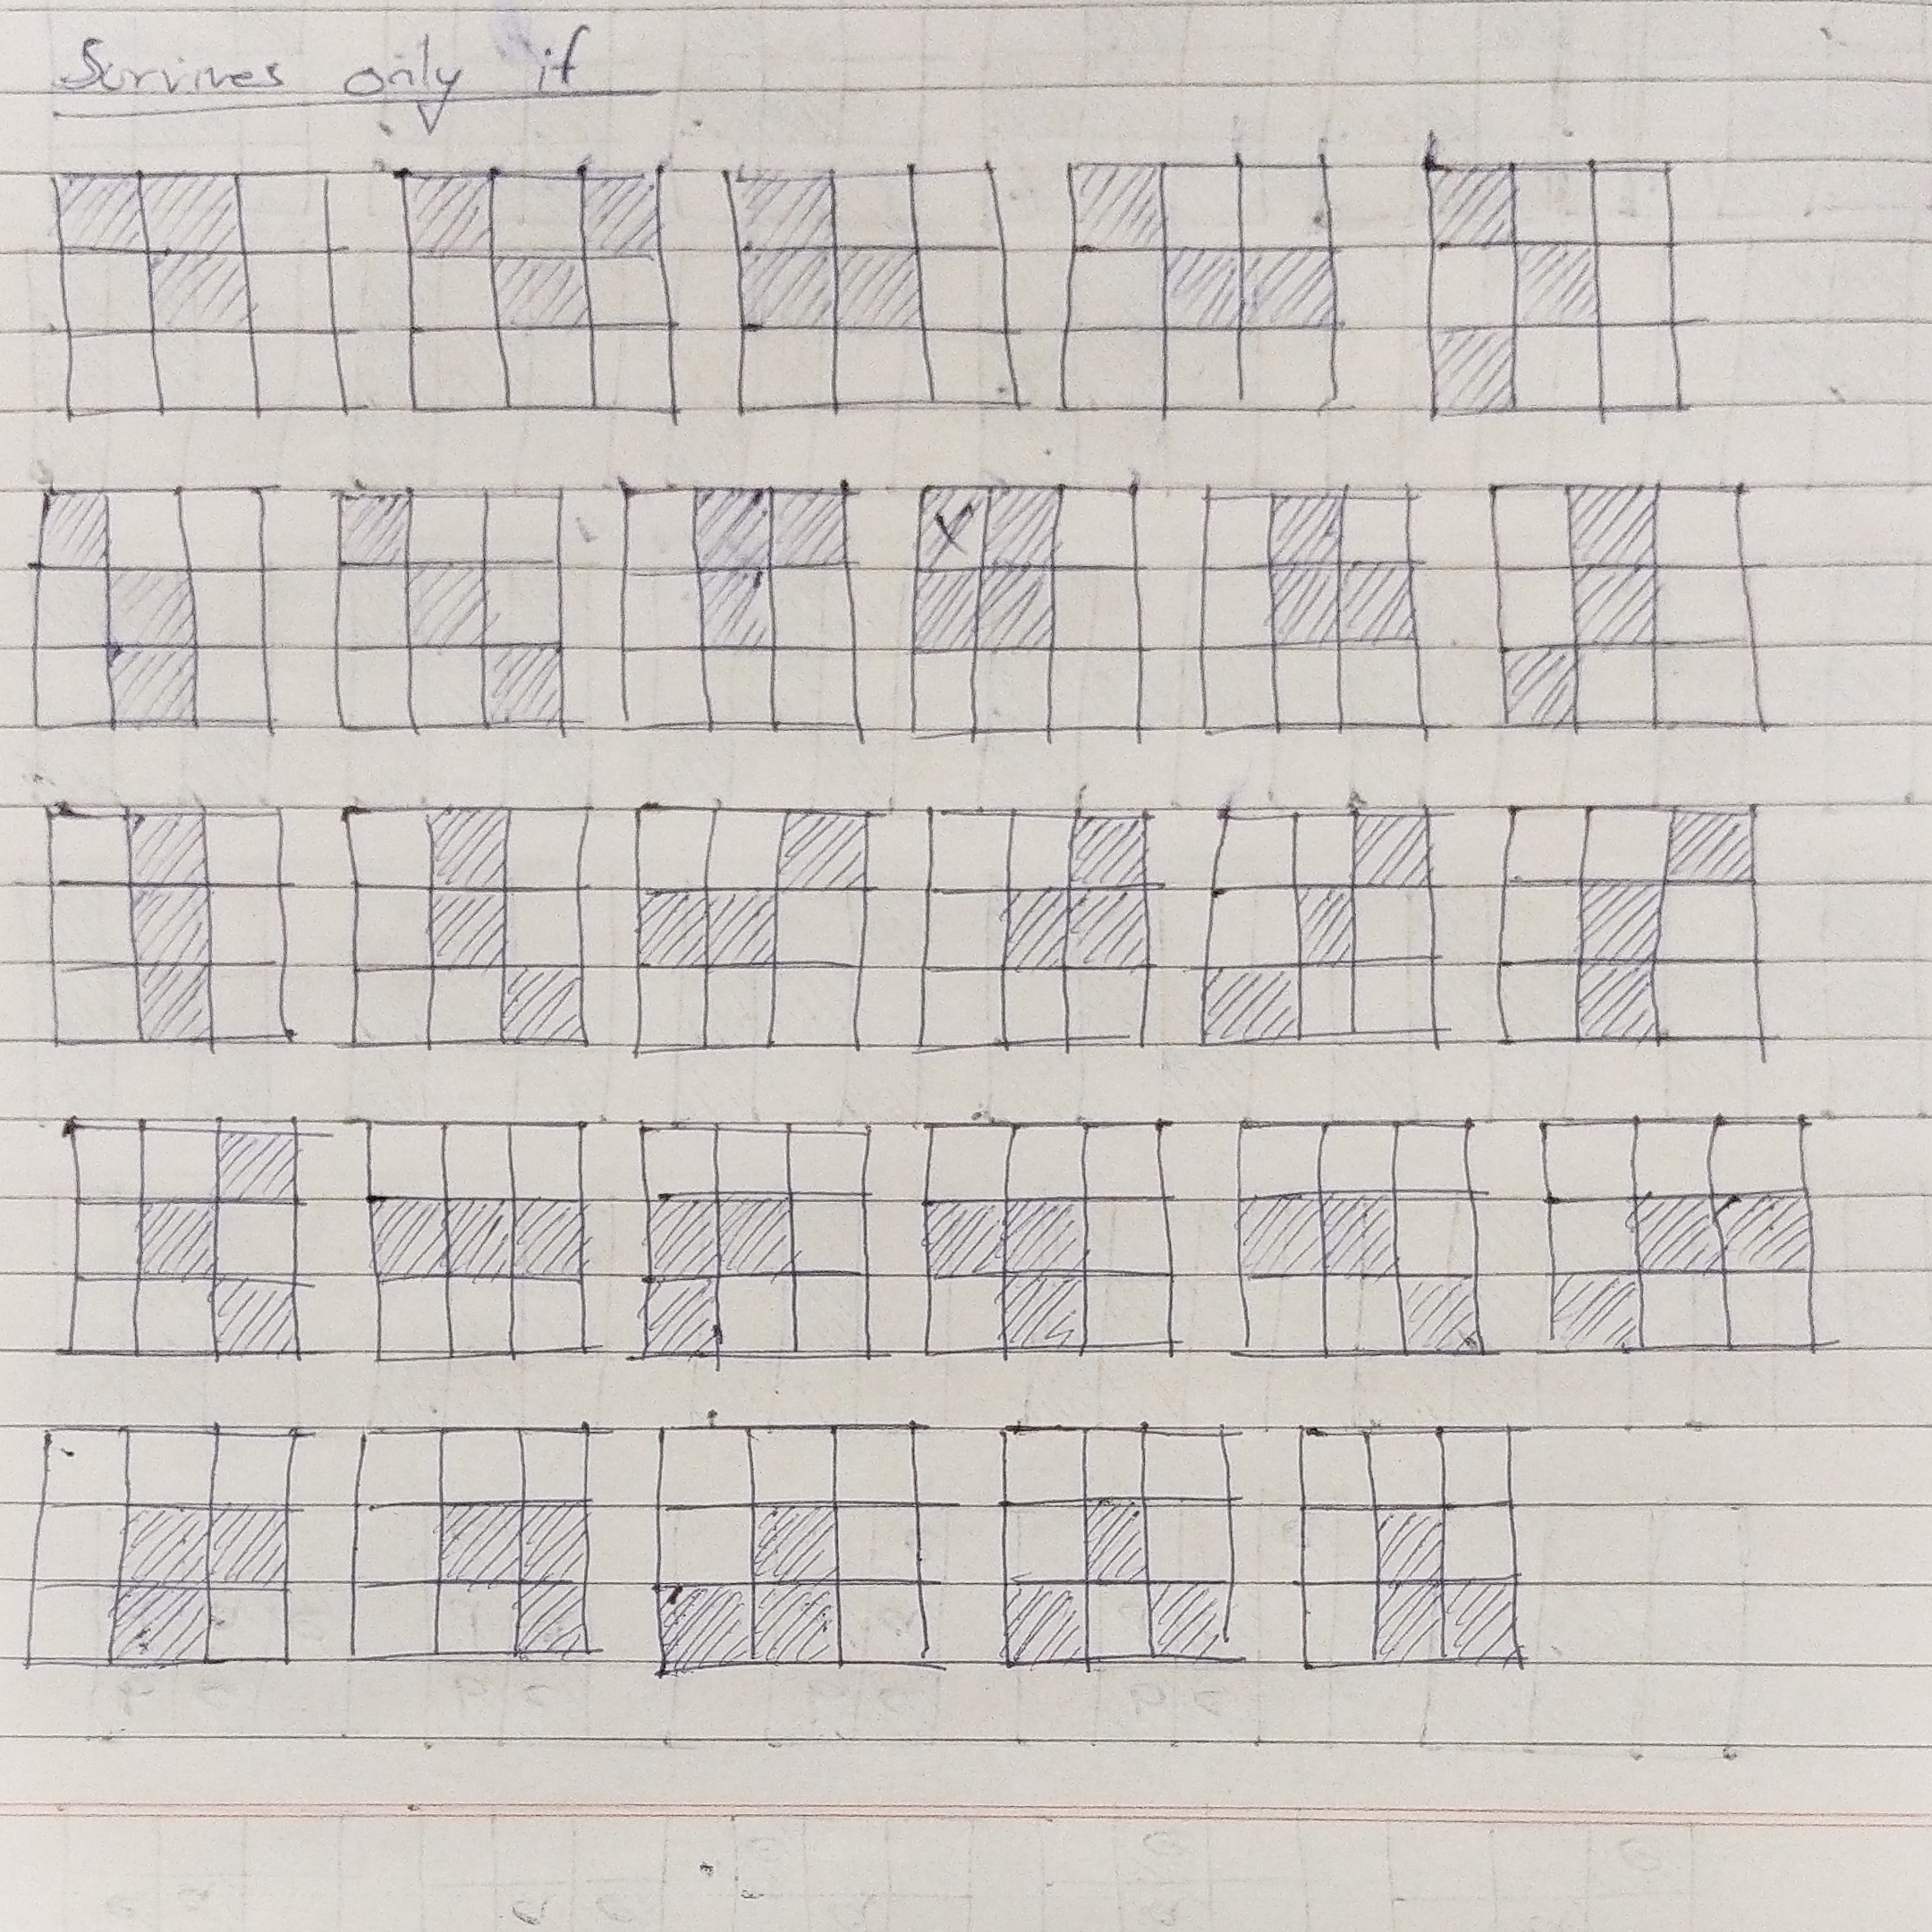 Survives only if